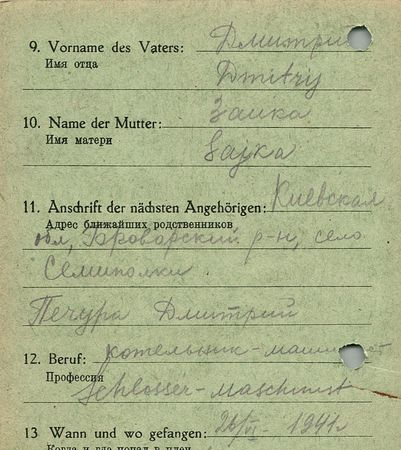 9. Vorname des Vaters: Дмитрий
Имя отца
Dmitry
10. Name der Mutter: Заика
Имя матери
Sajka
11. Anschrift der nächsten Angehörigen: Киевская
Адрес ближайших родственников
обл, Броварский р-н, село
Семиполки
Печура Дмитрий
12. Beruf: котельник-машинист
Профессия
Schlosser-Maschinist
13 Wann und wo gefangen: 26/VI- 1941г
Когда и где попал в плен